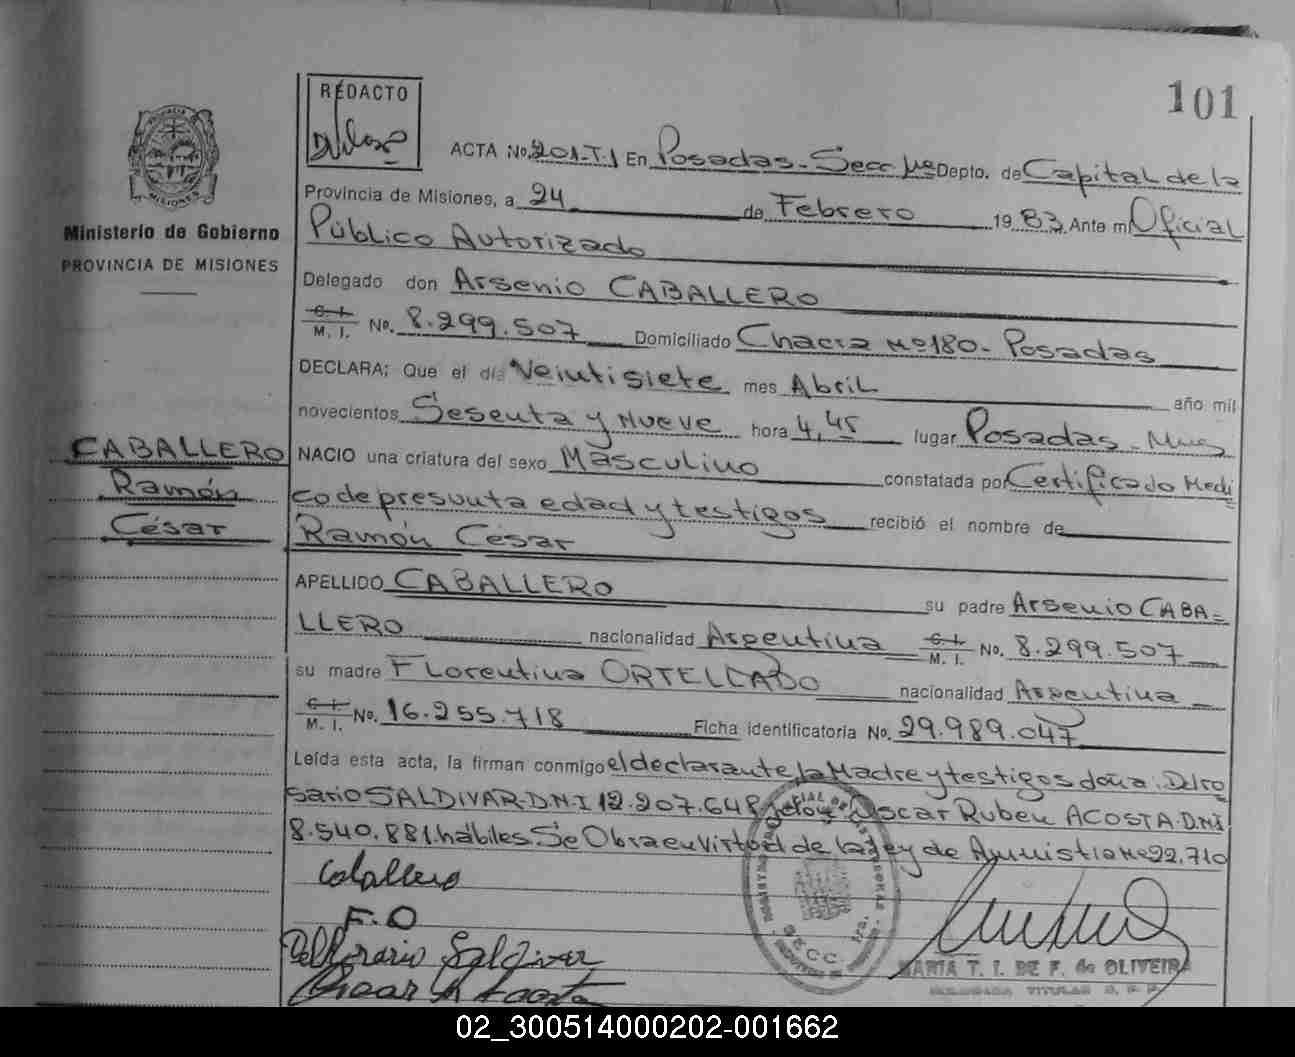 101
REDACTO
PROVINCIA DE
MISIONES
Ministerio de Gobierno
PROVINCIA DE MISIONES
ACTA No. 201-T.1 En Posadas-Secc 1ra Depto. de Capital de la
Provincia de Misiones, a 24 de Febrero 1983 Ante mi Oficial
Público Autorizado
Delegado don Arsenio CABALLERO
C. I.
M. I. No. 8.299.507 Domiciliado Chacra Nº180- Posadas
DECLARA; Que el día Veintisiete mes Abril año mil
novecientos Sesenta y Nueve hora 4,45 lugar Posadas-Mnes
CABALLERO
Ramón
César
NACIO una criatura del sexo Masculino constatada por Certificado Medi
co de presunta edad y testigos recibió el nombre de
Ramón César
APELLIDO CABALLERO su padre Arsenio CABA=
LLERO nacionalidad Argentina C. I.
M. I. No. 8.299.507
su madre Florentina ORTELLADO nacionalidad Argentina
C. I.
M. I. No. 16.255.718 Ficha identificatoria No. 29.989.047
Leída esta acta, la firman conmigo el declarante, la Madre y testigos doña: Del ro
sario SALDIVAR-D.N.I 12.207.648 Oscar Ruben ACOSTA.D.N.I
8.540.881. hábiles. Se Obra en Virtud de la Ley de Amnistia Nº22.710
Caballero
F.O
Del Rosario Saldivar
Oscar R Acosta
SECC. 1ra.
MARIA T. I. DE F. de OLIVEIRA
02_300514000202-001662